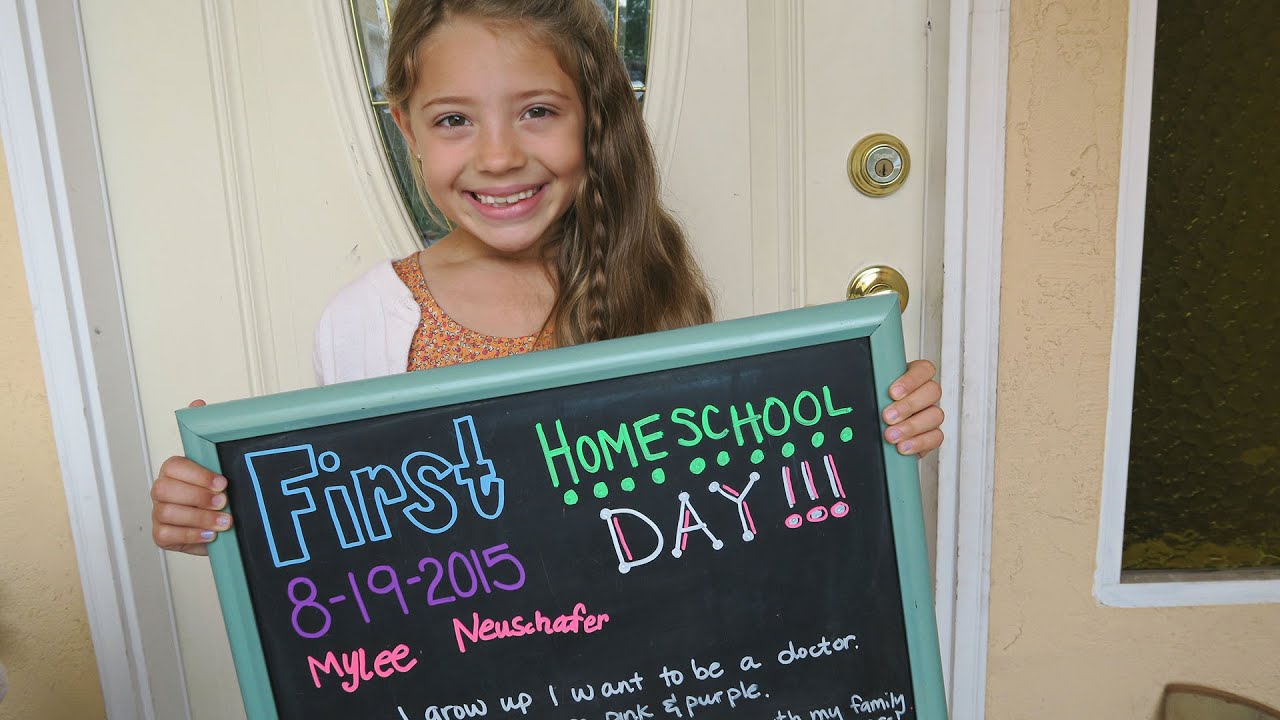 First HOMESCHOOL
DAY!!!
8-19-2015
Mylee Neuschafer
I grow up I want to be a doctor.
pink & purple.
with my family